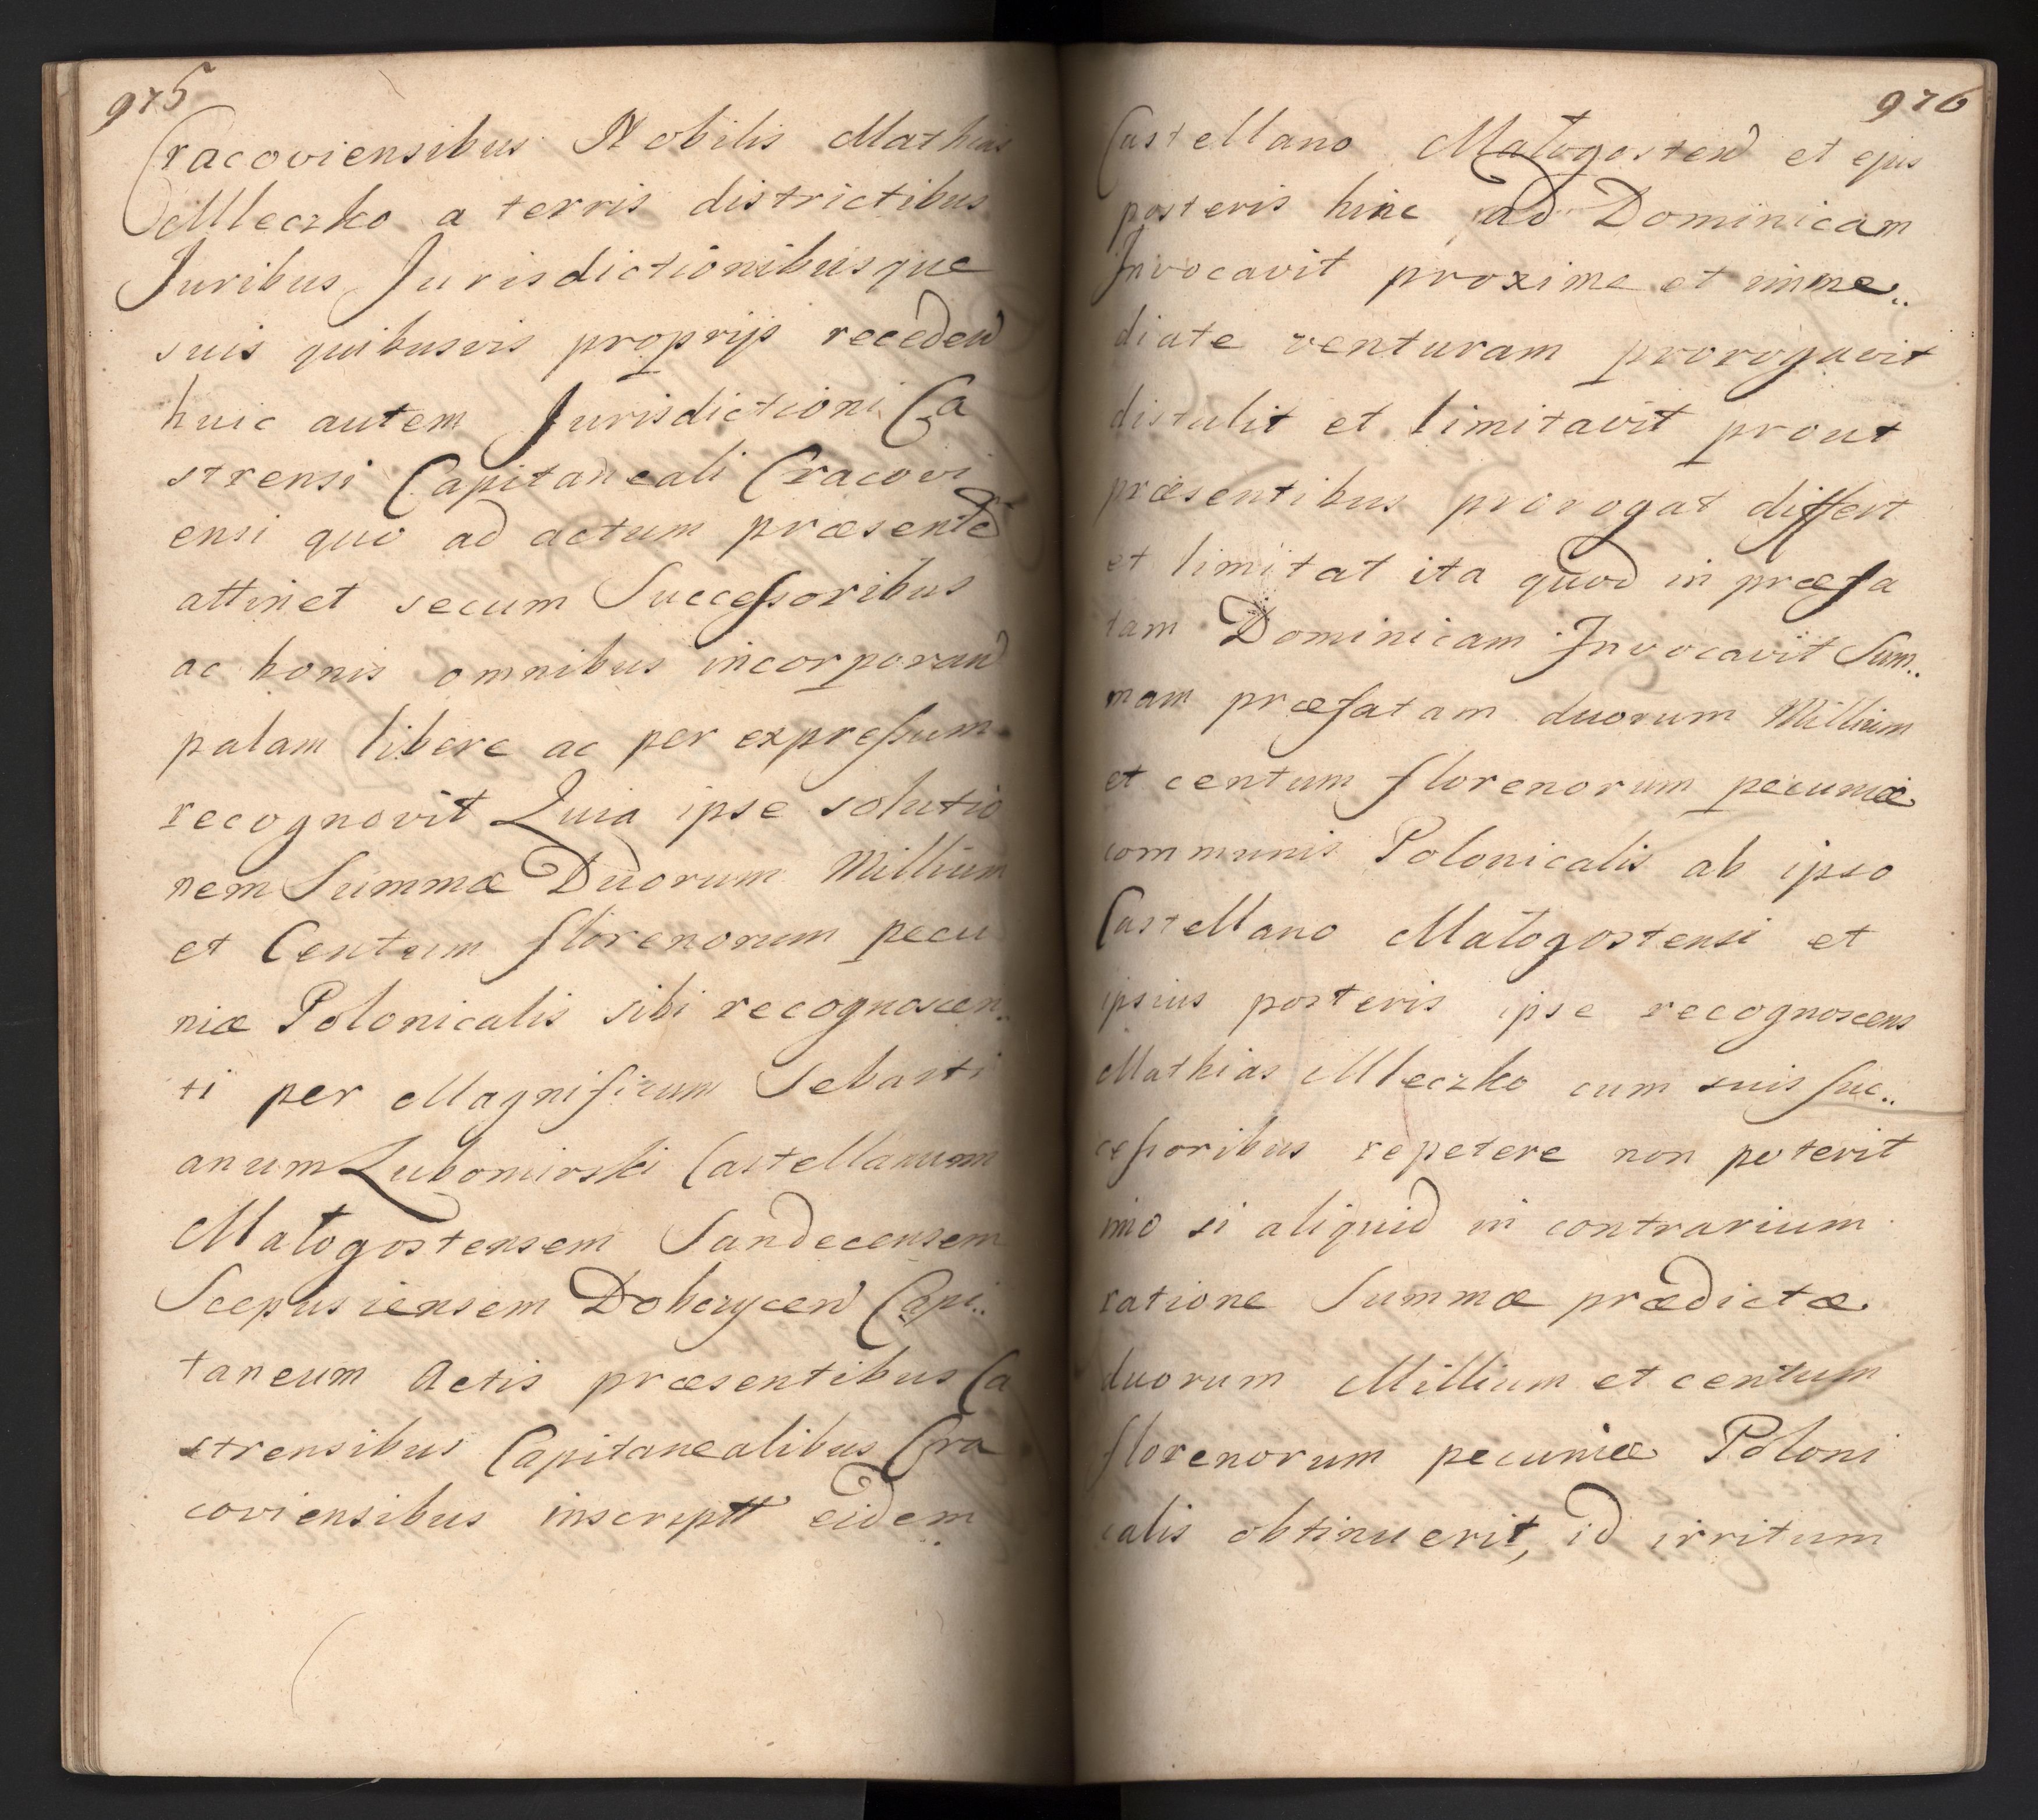 975
Cracoviensibus Nobilis Mathias
Mleczko a terris districtibus
Juribus Jurisdictionibusque
suis quibusvis proprijs receden
huic autem Jurisdictioni Ca
strensi Capitaneali Cracovi
ensi quo ad actum præsente
attinet secum Successoribus
ac bonis omnibus incorporan
palam libere ac per expressum
recognovit Quia ipse solutio
nem Summæ Duorum Millium
et Centum florenorum pecu
niæ Polonicalis sibi recognoscen..
ti per Magnificum Sebasti
anum Lubomirski Castellanum
Małogostensem Sandecensem
Scepusiensem Dobczycen Capi..
taneum Actis præsentibus Ca
strensibus Capitanealibus Cra
coviensibus inscriptt eidem
976
Castellano Małogosten et ejus
posteris hinc ad Dominicam
Invocavit proxime et imme..
diate venturam prorogavit
distulit et limitavit prout
præsentibus prorogat differt
et limitat ita quod in præfa
tam Dominicam Invocavit Sum..
mam præfatam duorum Millium
et centum florenorum pecuniæ
communis Polonicalis ab ipso
Castellano Małogostensi et
ipsius posteris ipse recognoscens
Mathias Mleczko cum suis Suc..
cessoribus repetere non poterit
imo si aliquid in contrarium
ratione Summæ prædictæ
duorum Millium et centum
florenorum pecuniæ Poloni
calis obtinuerit, id irritum